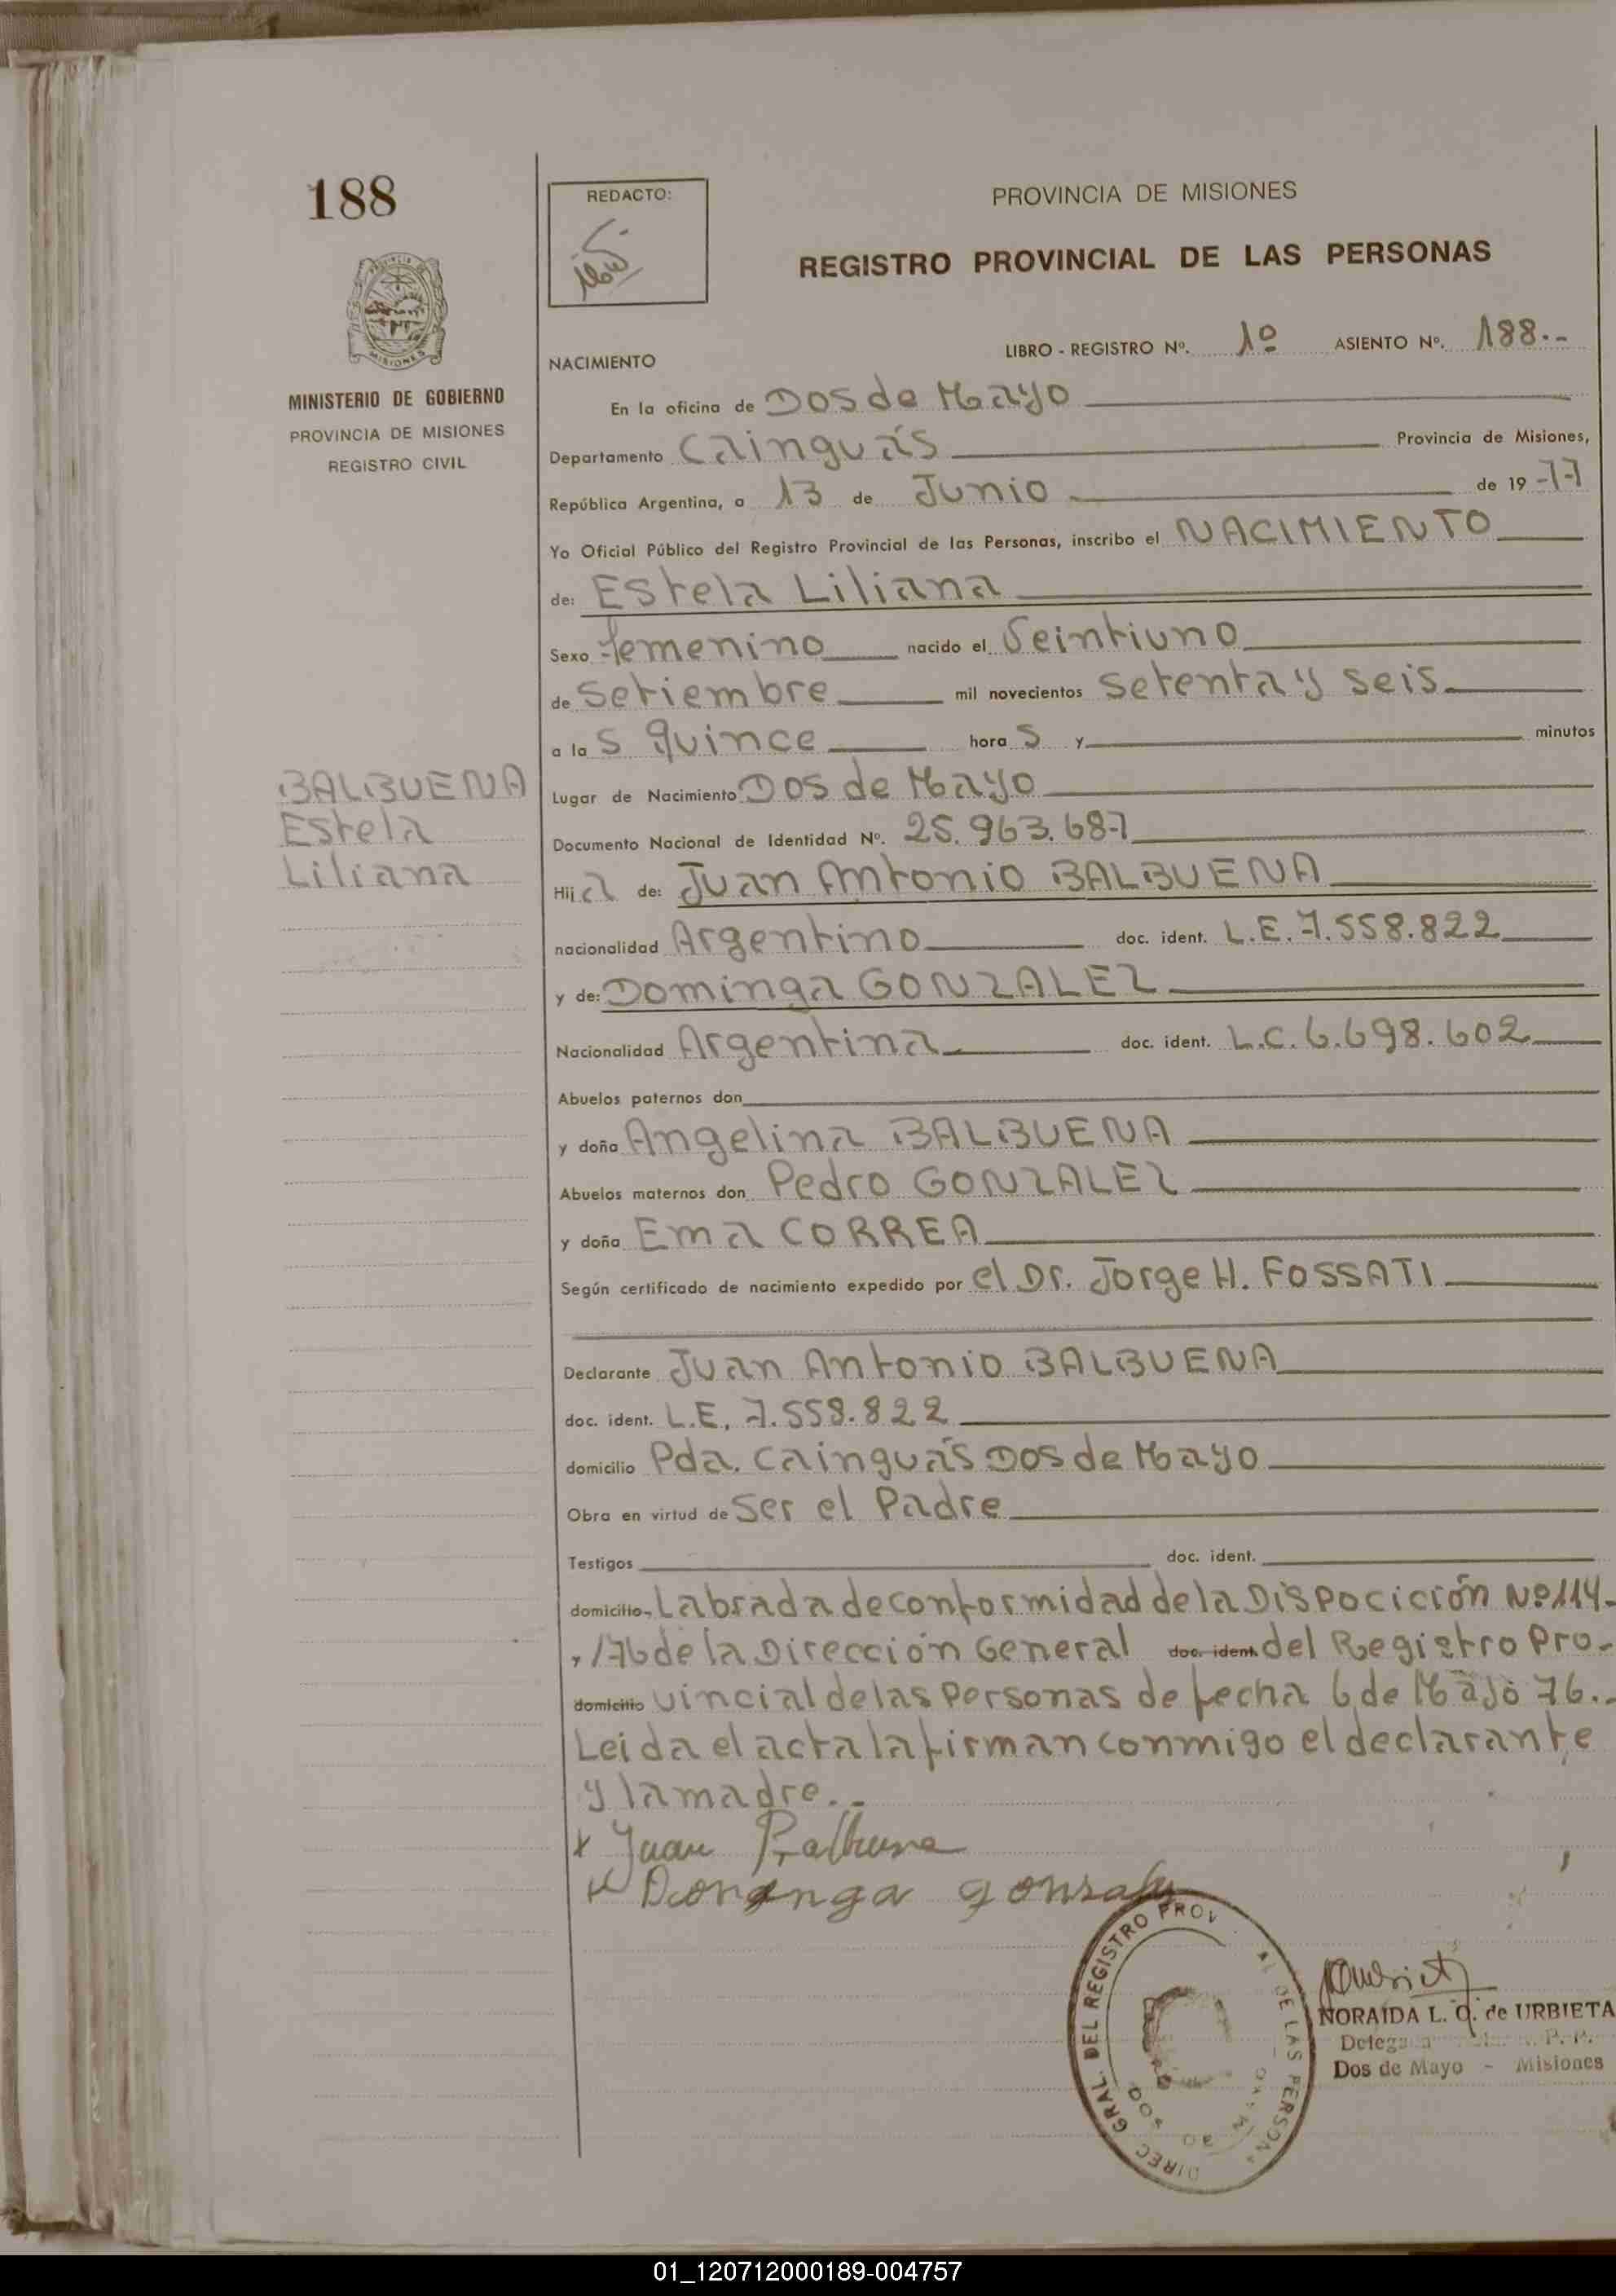 188
REDACTO:
PROVINCIA DE MISIONES
REGISTRO PROVINCIAL DE LAS PERSONAS
MISIONES
MINISTERIO DE GOBIERNO
PROVINCIA DE MISIONES
REGISTRO CIVIL
NACIMIENTO
LIBRO - REGISTRO Nº. 1º ASIENTO Nº. 188.-
En la oficina de Dos de Mayo
Departamento Cainguás Provincia de Misiones,
República Argentina, a 13 de Junio de 19 77
Yo Oficial Público del Registro Provincial de las Personas, inscribo el NACIMIENTO
de: Estela Liliana
Sexo femenino nacido el Veintiuno
de Setiembre mil novecientos setenta y seis
a la s quince hora s y minutos
BALBUENA
Estela
Liliana
Lugar de Nacimiento Dos de Mayo
Documento Nacional de Identidad Nº. 25.963.687
Hij a de: Juan Antonio BALBUENA
nacionalidad Argentino doc. ident. L.E. 7.558.822
y de: Dominga GONZALEZ
Nacionalidad Argentina doc. ident. L.C. 6.698.602
Abuelos paternos don
y doña Angelina BALBUENA
Abuelos maternos don Pedro GONZALEZ
y doña Ema CORREA
Según certificado de nacimiento expedido por el Dr. Jorge H. FOSSATI
Declarante Juan Antonio BALBUENA
doc. ident. L.E. 7.558.822
domicilio Pda. Cainguás Dos de Mayo
Obra en virtud de Ser el Padre
Testigos doc. ident.
domicilio Labrada de conformidad de la Dispocición Nº 114-
/76 de la Dirección General doc. ident. del Registro Pro-
domicilio vincial de las Personas de fecha 6 de Mayo 76.-
Leida el acta la firman conmigo el declarante
y la madre.-
x Juan Balbuena
x Dominga gonzalez
DIREC. GRAL. DEL REGISTRO PROV AL DE LAS PERSONA
DOS DE MAYO
NORAIDA L. Q. de URBIETA
Dos de Mayo - Misiones
01_120712000189-004757